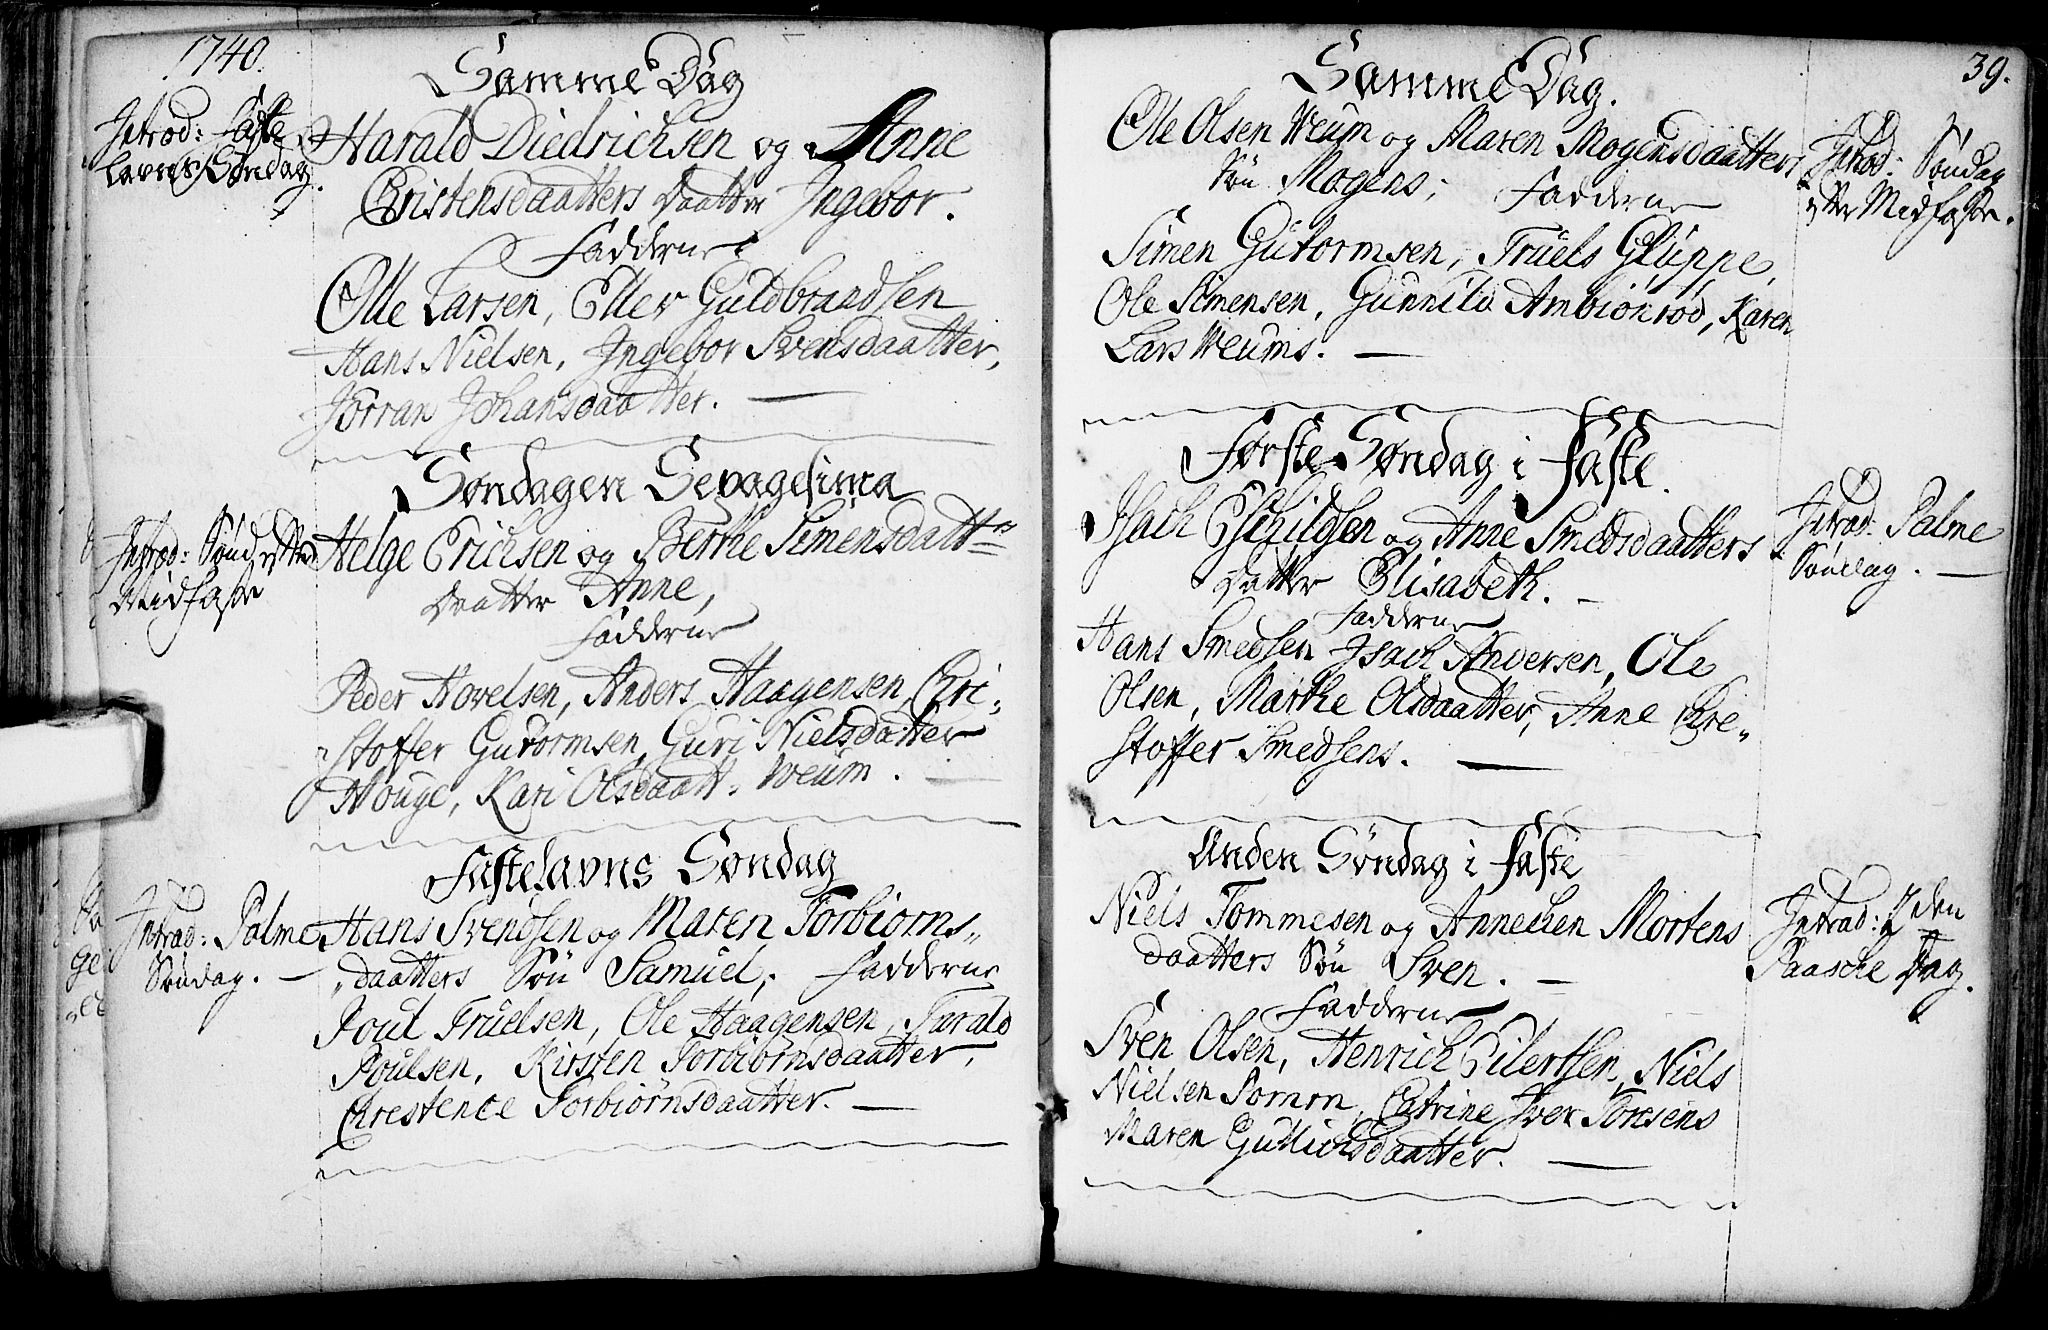 1740.
Samme Dag
Introd: Faste
lavns Søndag.
Harald Diedrichsen og Anne
Christensdaatters Daatter Ingebor.
Faddere
Olle Larsen, Eller Guldbrandsen
Hans Nielsen, Ingebor Svensdaatter,
Jörran Johansdaatter.
Søndagen Sexagesima
Introd: Sønd. efter
Midfaste
Helge Erichsen og Berthe Simensdatt=rs
Daatter Anne,
Fadderne
Peder Hovelsen, Anders Haagensen, Chri-
stoffer Gutormsen, Guri Nielsdatter
Houge, Kari Olsdaatt. Weum.
Fastelavns Søndag
Introd: Palme
Søndag.
Hans Svendsen og Maren Torbiørns-
daatters Søn Samuel, Fadderne
Poul Truelsen, Ole Haagensen, Harald
Poulsen, Kirsten Torbiørnsdaatter,
Chrestence Torbiørnsdaatter.
39.
Samme Dag.
Ole Olsen Weum og Maren Mogensdaatters
Søn Mogens; Fadderne
Introd: Søndag
efter Midfaste.
Simen Gutormsen, Truels Gluppe,
Ole Simensen, Gunnild Ambiørrød, Karen
Lars Weums.
Første Søndag i Faste.
Isach Eschildsen og Anne Smedsdaatters
Datter Elisabeth.
Introd: Palme
Søndag.
Fadderne
Hans Smedsen Isach Andersen, Ole
Olsen, Marthe Olsdaatter, Anne Chre-
stoffer Smedsens.
Anden Søndag i Faste
Niels Tommesen og Annechen Mortens
daatters Søn Sven.
Introd: 2den
Paasche Dag.
Fadderne
Sven Olsen, Henrich Eilertsen, Niels
Nielsen Somm, Catrine Iver Toresens
Maren Gullichsdaatter.